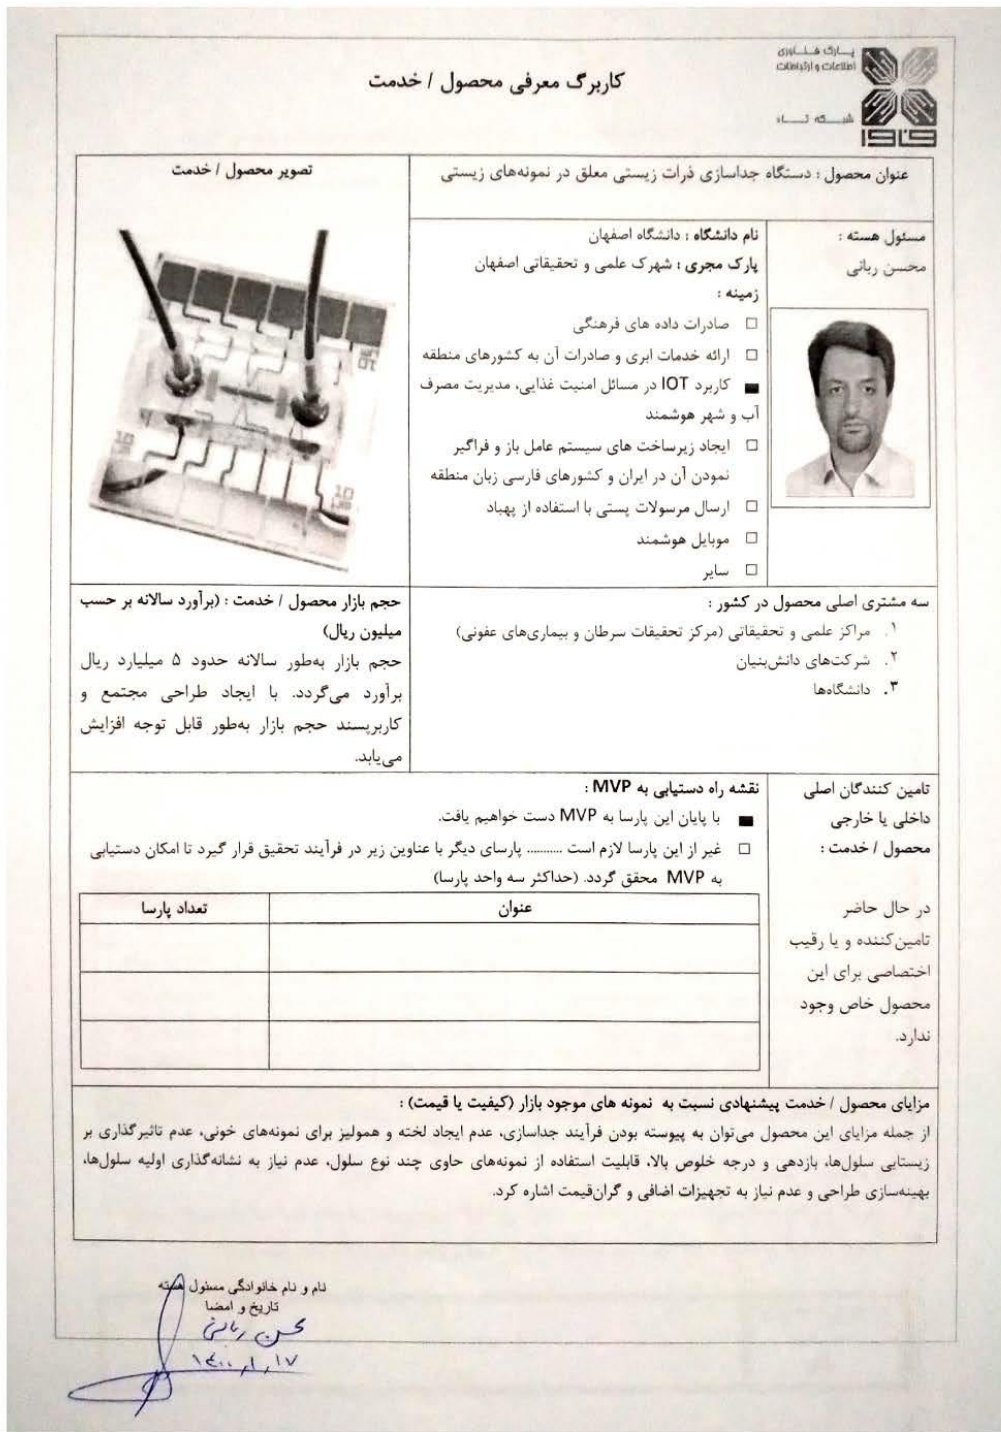 پارک فناوری
اطلاعات و ارتباطات
فاوا
کاربرگ معرفی محصول / خدمت
عنوان محصول : دستگاه جداسازی ذرات زیستی معلق در نمونه‌های زیستی
تصویر محصول / خدمت
10
10
مسئول هسته :
محسن ربانی
نام دانشگاه : دانشگاه اصفهان
پارک مجری : شهرک علمی و تحقیقاتی اصفهان
زمینه :
□ صادرات داده های فرهنگی
□ ارائه خدمات ابری و صادرات آن به کشورهای منطقه
■ کاربرد IOT در مسائل امنیت غذایی، مدیریت مصرف
آب و شهر هوشمند
□ ایجاد زیرساخت های سیستم عامل باز و فراگیر
نمودن آن در ایران و کشورهای فارسی زبان منطقه
□ ارسال مرسولات پستی با استفاده از پهباد
□ موبایل هوشمند
□ سایر
سه مشتری اصلی محصول در کشور :
۱. مراکز علمی و تحقیقاتی (مرکز تحقیقات سرطان و بیماری‌های عفونی)
۲. شرکت‌های دانش‌بنیان
۳. دانشگاه‌ها
حجم بازار محصول / خدمت : (برآورد سالانه بر حسب
میلیون ریال)
حجم بازار به‌طور سالانه حدود ۵ میلیارد ریال
برآورد می‌گردد. با ایجاد طراحی مجتمع و
کاربرپسند حجم بازار به‌طور قابل توجه افزایش
می‌یابد.
تامین کنندگان اصلی
داخلی یا خارجی
محصول / خدمت :
در حال حاضر
تامین‌کننده و یا رقیب
اختصاصی برای این
محصول خاص وجود
ندارد.
نقشه راه دستیابی به MVP :
■ با پایان این پارسا به MVP دست خواهیم یافت.
□ غیر از این پارسا لازم است .......... پارسای دیگر با عناوین زیر در فرآیند تحقیق قرار گیرد تا امکان دستیابی
به MVP محقق گردد. (حداکثر سه واحد پارسا)
عنوان
تعداد پارسا
مزایای محصول / خدمت پیشنهادی نسبت به نمونه های موجود بازار (کیفیت یا قیمت) :
از جمله مزایای این محصول می‌توان به پیوسته بودن فرآیند جداسازی، عدم ایجاد لخته و همولیز برای نمونه‌های خونی، عدم تاثیرگذاری بر
زیستایی سلول‌ها، بازدهی و درجه خلوص بالا، قابلیت استفاده از نمونه‌های حاوی چند نوع سلول، عدم نیاز به نشانه‌گذاری اولیه سلول‌ها،
بهینه‌سازی طراحی و عدم نیاز به تجهیزات اضافی و گران‌قیمت اشاره کرد.
نام و نام خانوادگی مسئول هسته
تاریخ و امضا
محسن ربانی
۱۴۰۰,۱,۱۷